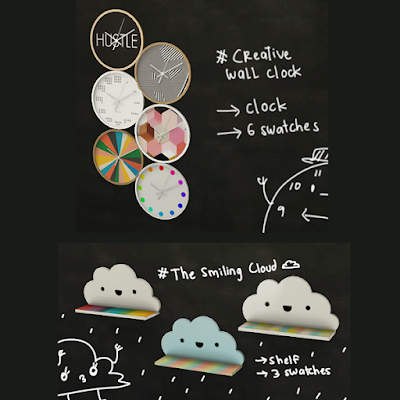 HUSTLE
# Creative
wall clock
→ clock
→ 6 swatches
11
10
9
# The smiling Cloud
3
→ shelf
→ 3 swatches